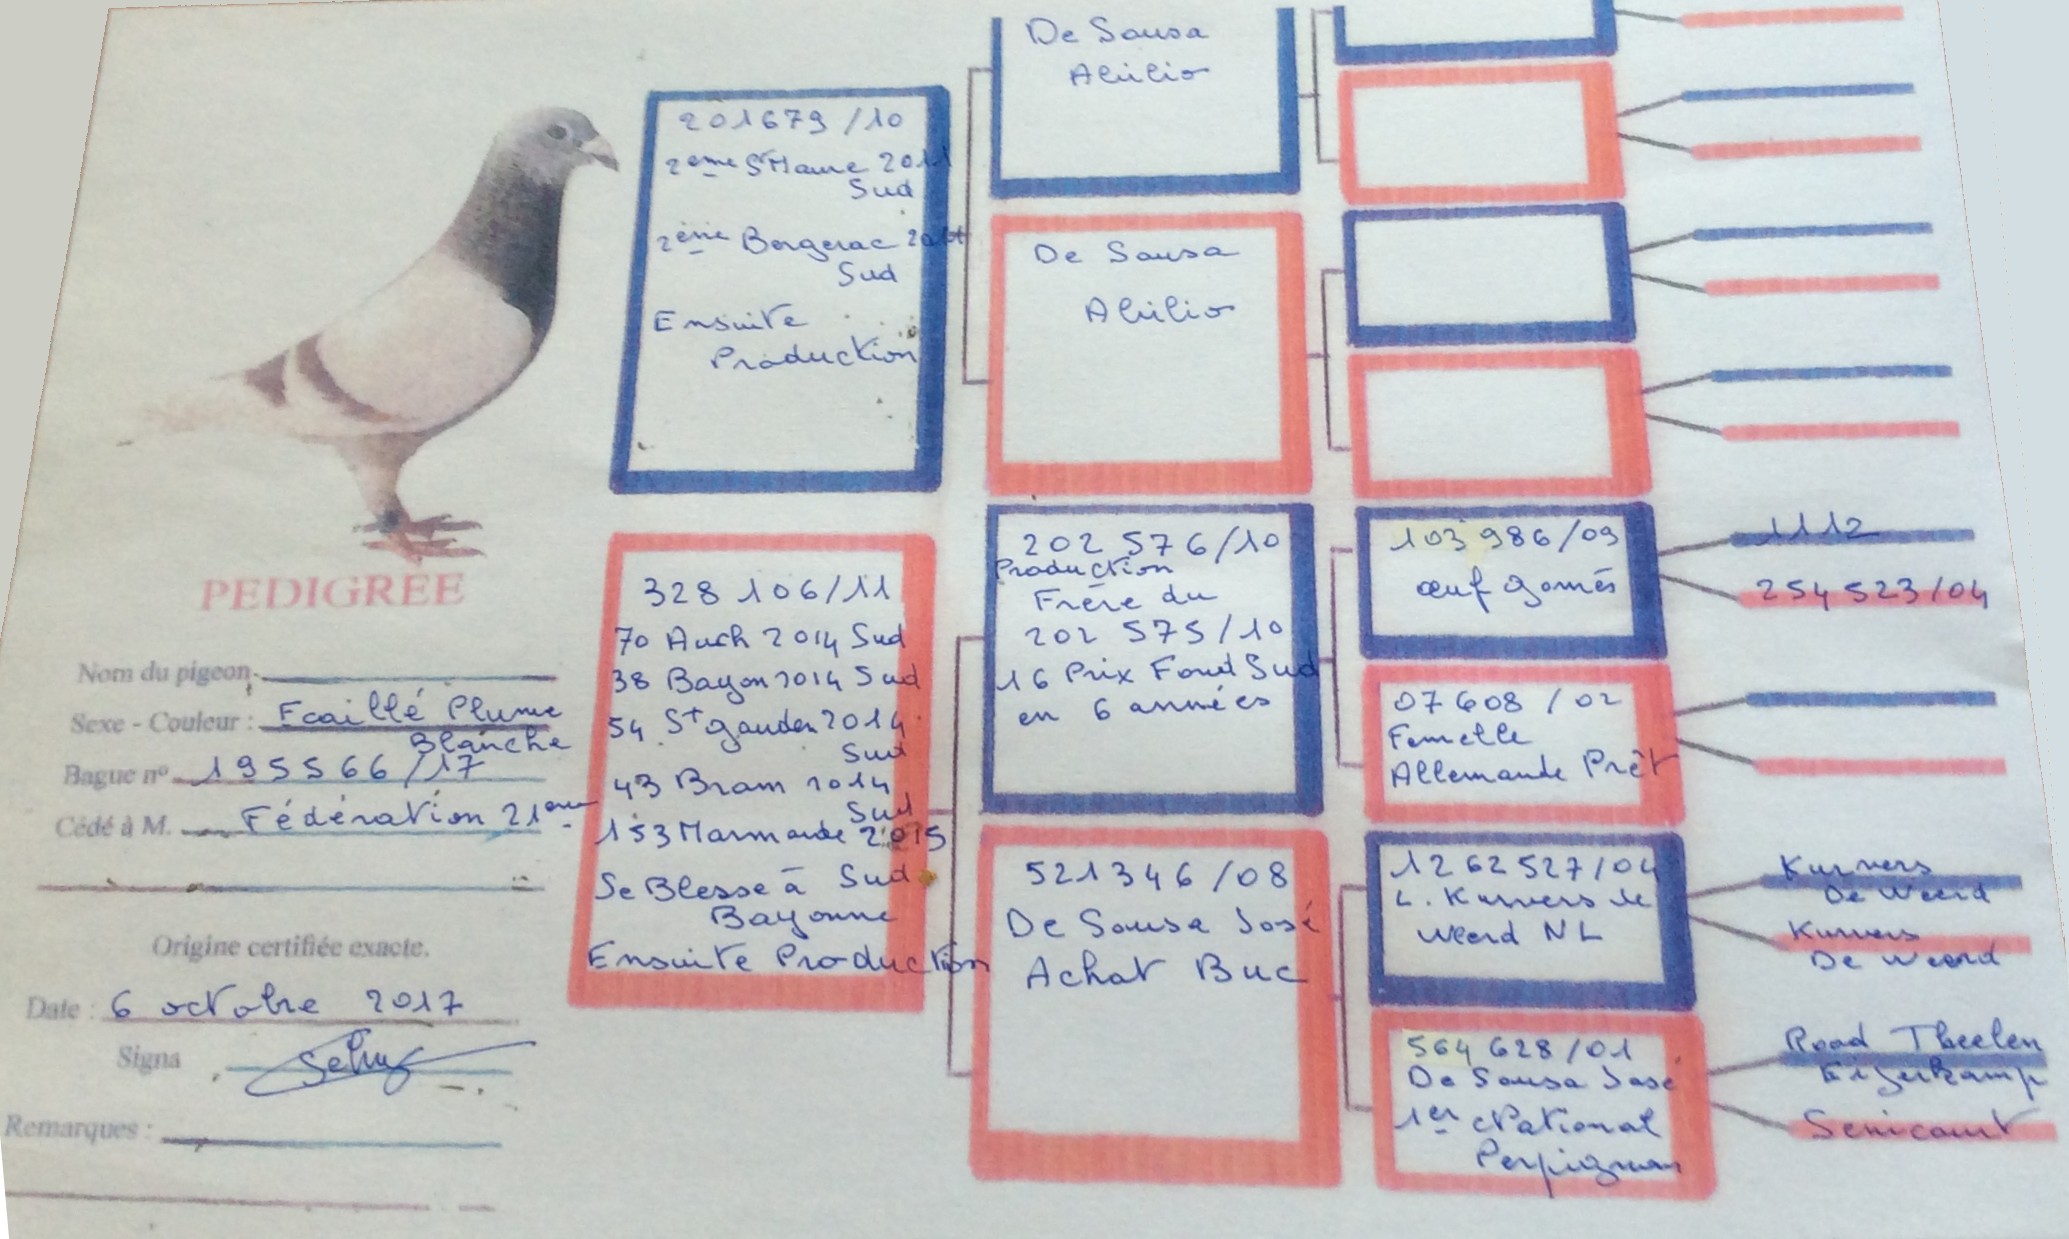 PEDIGRÉE
Nom du pigeon
Sexe - Couleur : Ecaillé Plume
Blanche
Bague nº 195566/17
Cédé à M. Fédération 21ème
Origine certifiée exacte.
Date : 6 octobre 2017
Signa
Remarques :
201679/10
2ème St Maure 2011
Sud
2ème Bergerac
Sud
Ensuite
Production
328 106/11
70 Auch 2014 Sud
38 Bayon 2014 Sud
54 St gauden 2014
Sud
43 Bram 2014
Sud
153 Marmande 2015
Se Blesse à Sud
Bayonne
Ensuite Production
De Sousa
Abilio
De Sousa
Abilio
202 576/10
Production
Frère du
202 575/10
16 Prix Fond Sud
en 6 années
521346/08
De Sousa José
Achat Buc
103 986/09
œuf gomés
07608/02
Femelle
Allemande Prêt
1262527/04
L. Kurvers de
weerd NL
564 628/01
De Sousa José
1er National
Perpignan
1112
254 523/04
Kurvers
De Weerd
Kurvers
De Weerd
Road Theelen
Eijerkamp
Senicourt